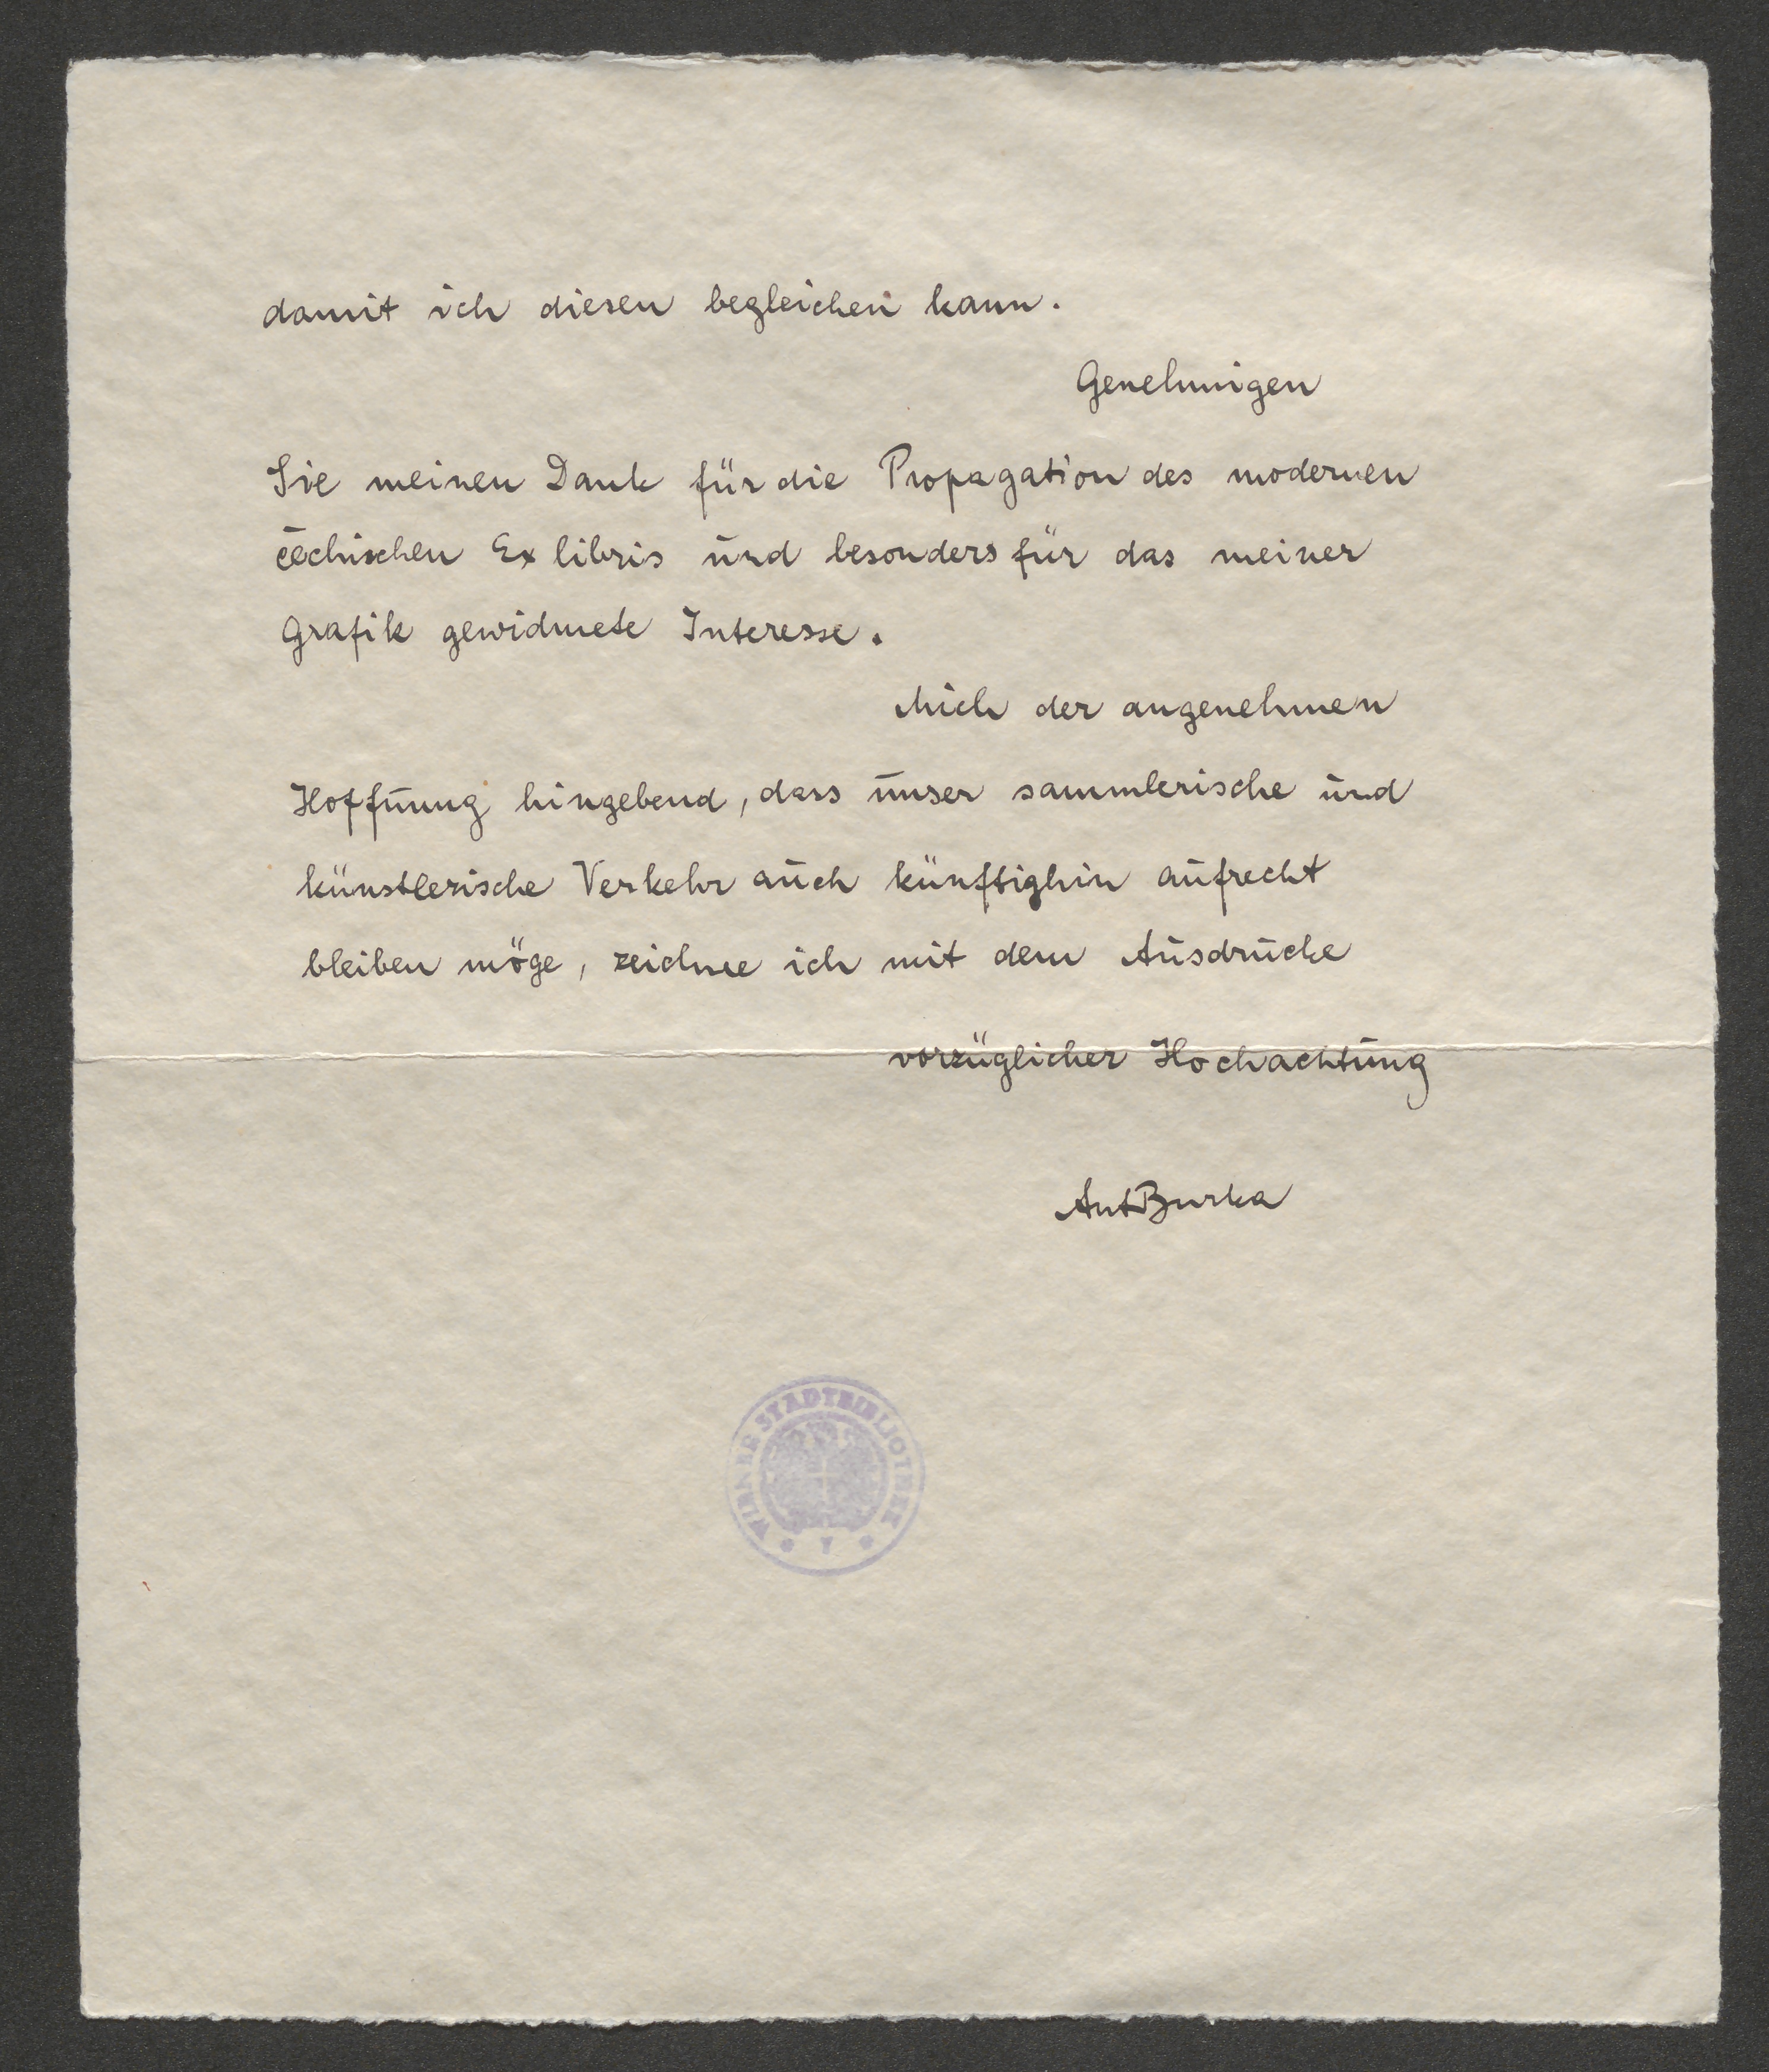 damit ich diesen begleichen kann.
Genehmigen
Sie meinen Dank für die Propagation des modernen
čechischen Ex libris und besonders für das meiner
Grafik gewidmete Interesse.
Mich der angenehmen
Hoffnung hingebend, dass unser sammlerische und
künstlerische Verkehr auch künftighin aufrecht
bleiben möge, zeichne ich mit dem Ausdrucke
vorzüglicher Hochachtung
AntBurka
WIENER STADTBIBLIOTHEK